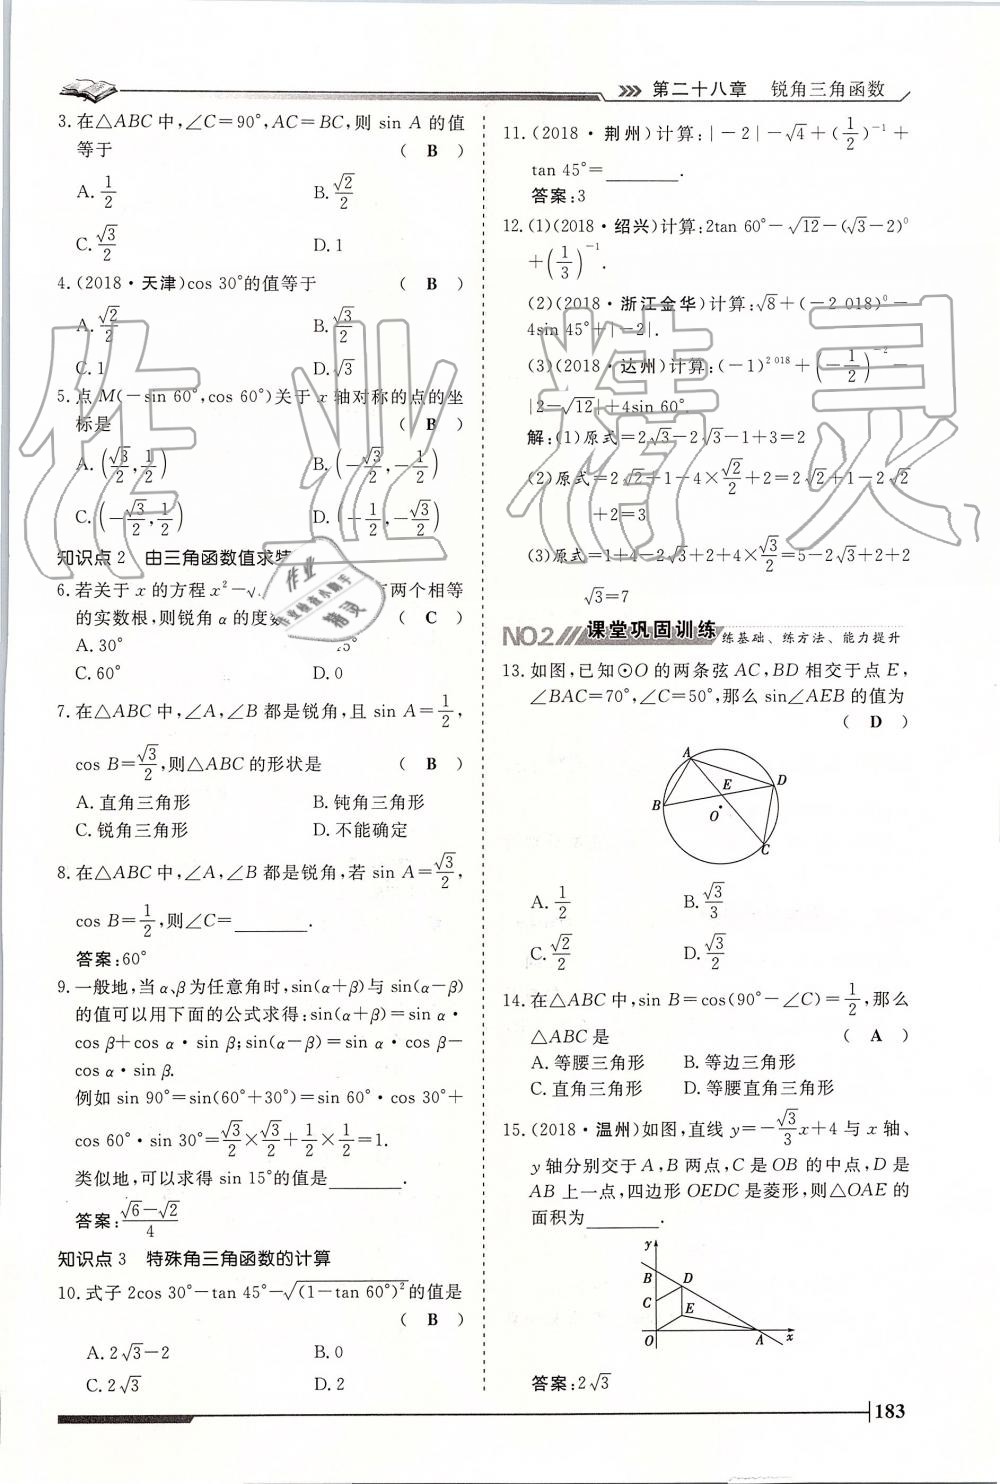 第二十八章 锐角三角函数
3.在△ABC中,∠C=90°,AC=BC,则 sin A 的值
等于 ( B )
A. 1/2 B. √2/2
C. √3/2 D. 1
4.(2018·天津)cos 30°的值等于 ( B )
A. √2/2 B. √3/2
C. 1 D. √3
5.点 M(-sin 60°,cos 60°)关于 x 轴对称的点的坐
标是 ( B )
A. (√3/2,1/2) B. (-√3/2,-1/2)
C. (-√3/2,1/2) D. (-1/2,-√3/2)
知识点2 由三角函数值求特
6.若关于 x 的方程 x²-√ 有两个相等
的实数根,则锐角 α 的度数 ( C )
A. 30°
C. 60° D. 0
7.在△ABC中,∠A,∠B都是锐角,且 sin A=1/2,
cos B=√3/2,则△ABC的形状是 ( B )
A. 直角三角形 B. 钝角三角形
C. 锐角三角形 D. 不能确定
8.在△ABC中,∠A,∠B都是锐角,若 sin A=√3/2,
cos B=1/2,则∠C=______.
答案:60°
9.一般地,当α、β为任意角时,sin(α+β)与 sin(α-β)
的值可以用下面的公式求得:sin(α+β)=sin α·
cos β+cos α·sin β;sin(α-β)=sin α·cos β-
cos α·sin β.
例如 sin 90°=sin(60°+30°)=sin 60°·cos 30°+
cos 60°·sin 30°=√3/2×√3/2+1/2×1/2=1.
类似地,可以求得 sin 15°的值是______.
答案:(√6-√2)/4
知识点3 特殊角三角函数的计算
10.式子 2cos 30°-tan 45°-√(1-tan 60°)²的值是
( B )
A. 2√3-2 B. 0
C. 2√3 D. 2
11.(2018·荆州)计算:|-2|-√4+(1/2)⁻¹+
tan 45°=______.
答案:3
12.(1)(2018·绍兴)计算:2tan 60°-√12-(√3-2)⁰
+(1/3)⁻¹.
(2)(2018·浙江金华)计算:√8+(-2 018)⁰-
4sin 45°+|-2|.
(3)(2018·达州)计算:(-1)²⁰¹⁸+(-1/2)⁻²-
|2-√12|+4sin 60°.
解:(1)原式=2√3-2√3-1+3=2
(2)原式=2√2+1-4×√2/2+2=2√2+1-2√2
+2=3
(3)原式=1+4-2√3+2+4×√3/2=5-2√3+2+2
√3=7
NO.2 课堂巩固训练 练基础、练方法、能力提升
13.如图,已知⊙O的两条弦AC,BD相交于点E,
∠BAC=70°,∠C=50°,那么 sin∠AEB的值为
( D )
A
E
D
B
O
C
A. 1/2 B. √3/3
C. √2/2 D. √3/2
14.在△ABC中,sin B=cos(90°-∠C)=1/2,那么
△ABC是 ( A )
A. 等腰三角形 B. 等边三角形
C. 直角三角形 D. 等腰直角三角形
15.(2018·温州)如图,直线 y=-√3/3x+4 与 x 轴、
y轴分别交于A,B两点,C是OB的中点,D是
AB上一点,四边形OEDC是菱形,则△OAE的
面积为______.
y
B D
C
E
O A x
答案:2√3
183
作业精灵
作业
作业检查小助手
精灵